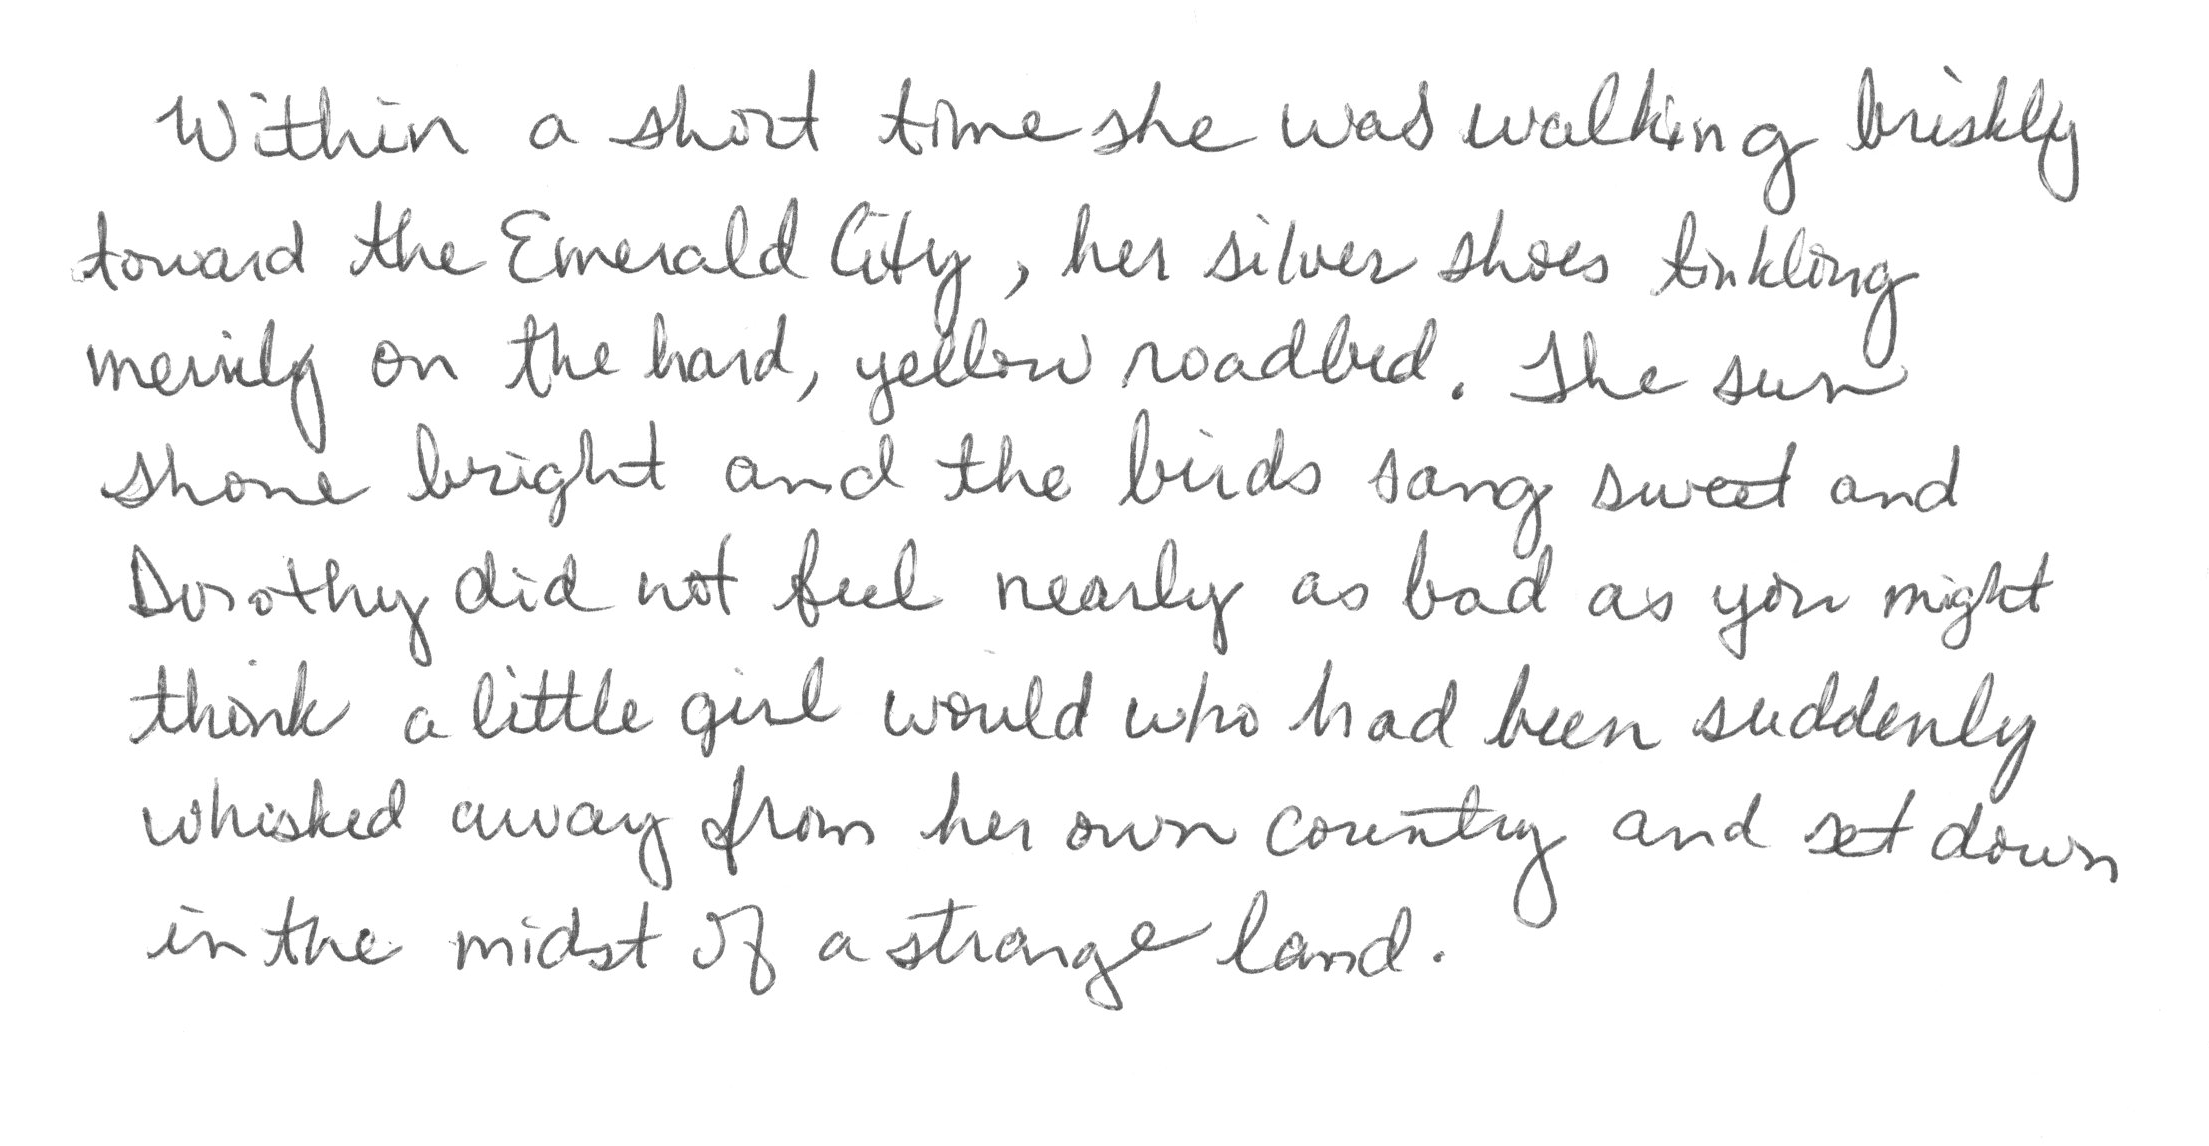 Within a short time she was walking briskly
toward the Emerald City, her silver shoes tinkling
merrily on the hard, yellow roadbed. The sun
shone bright and the birds sang sweet and
Dorothy did not feel nearly as bad as you might
think a little girl would who had been suddenly
whisked away from her own country and set down
in the midst of a strange land.